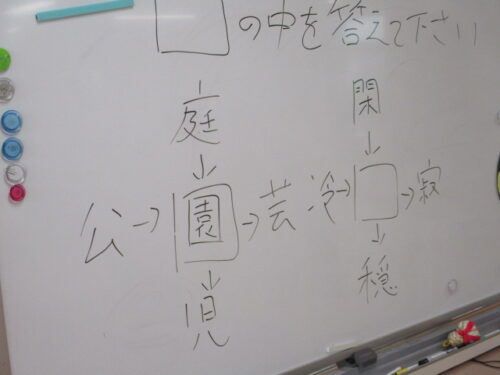 □の中を答えて下さい
庭
↓
公→園→芸
↓
児
閑
↓
冷→□→寂
↓
穏